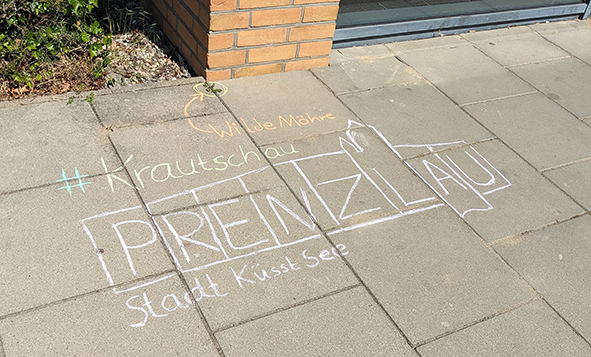 Wilde Möhre
#Krautschau
PRENZLAU
Stadt Küsst See